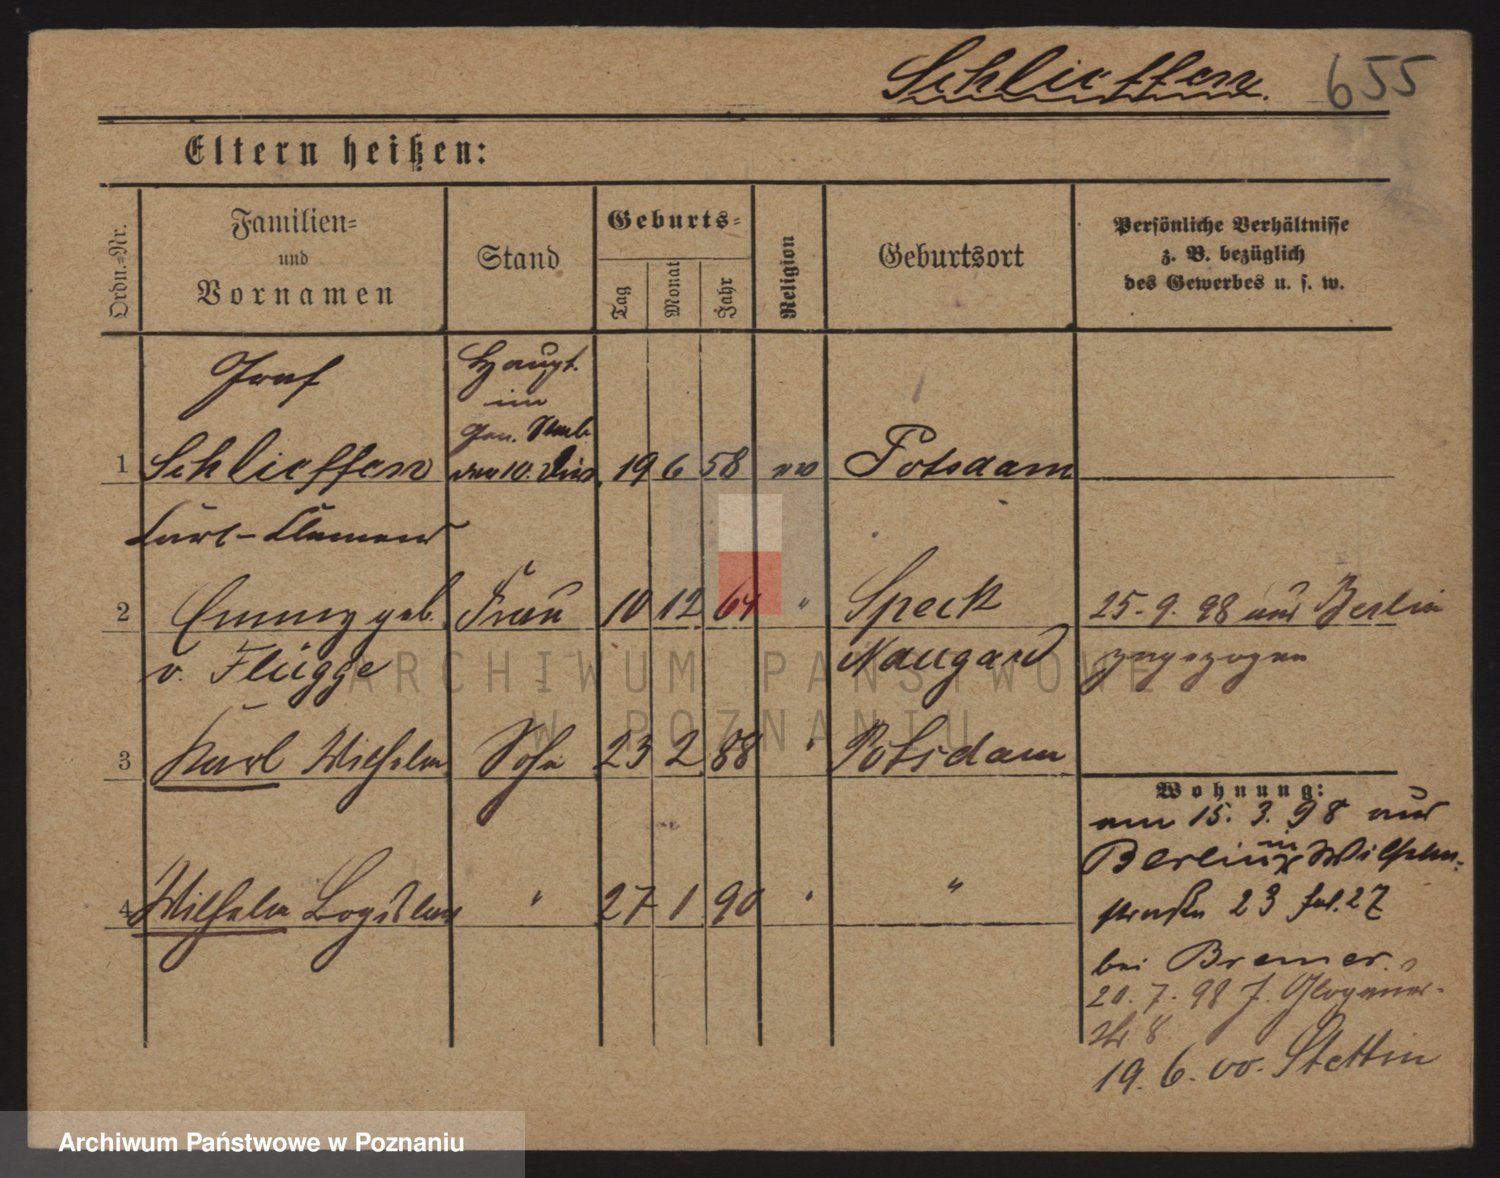 Schlieffen. 655
Eltern heißen:
Ordn.-Nr.
Familien-
und
Vornamen
Stand
Geburts-
Tag
Monat
Jahr
Religion
Geburtsort
Persönliche Verhältnisse
z. B. bezüglich
des Gewerbes u. s. w.
Graf
Haupt.
im
Gen. Stab
1 Schlieffen der 10. Div. 19 6 58 ev Potsdam
Karl-Clemens
2 Emmy geb. Frau 10 12 64 " Speck 25. 9. 98 aus Berlin
v. Flügge Naugard zugezogen
3 Karl Wilhelm Sohn 23 2 88 " Potsdam
Wohnung:
am 15. 3. 98 aus
Berlin in Wilhelm-
4 Wilhelm Bogislav " 27 1 90 " "
straße 23 27
bei Bremer.
20. 7. 98 Glogauer-
str 8.
19. 6. 00. Stettin
ARCHIWUM PAŃSTWOWE
W POZNANIU
Archiwum Państwowe w Poznaniu